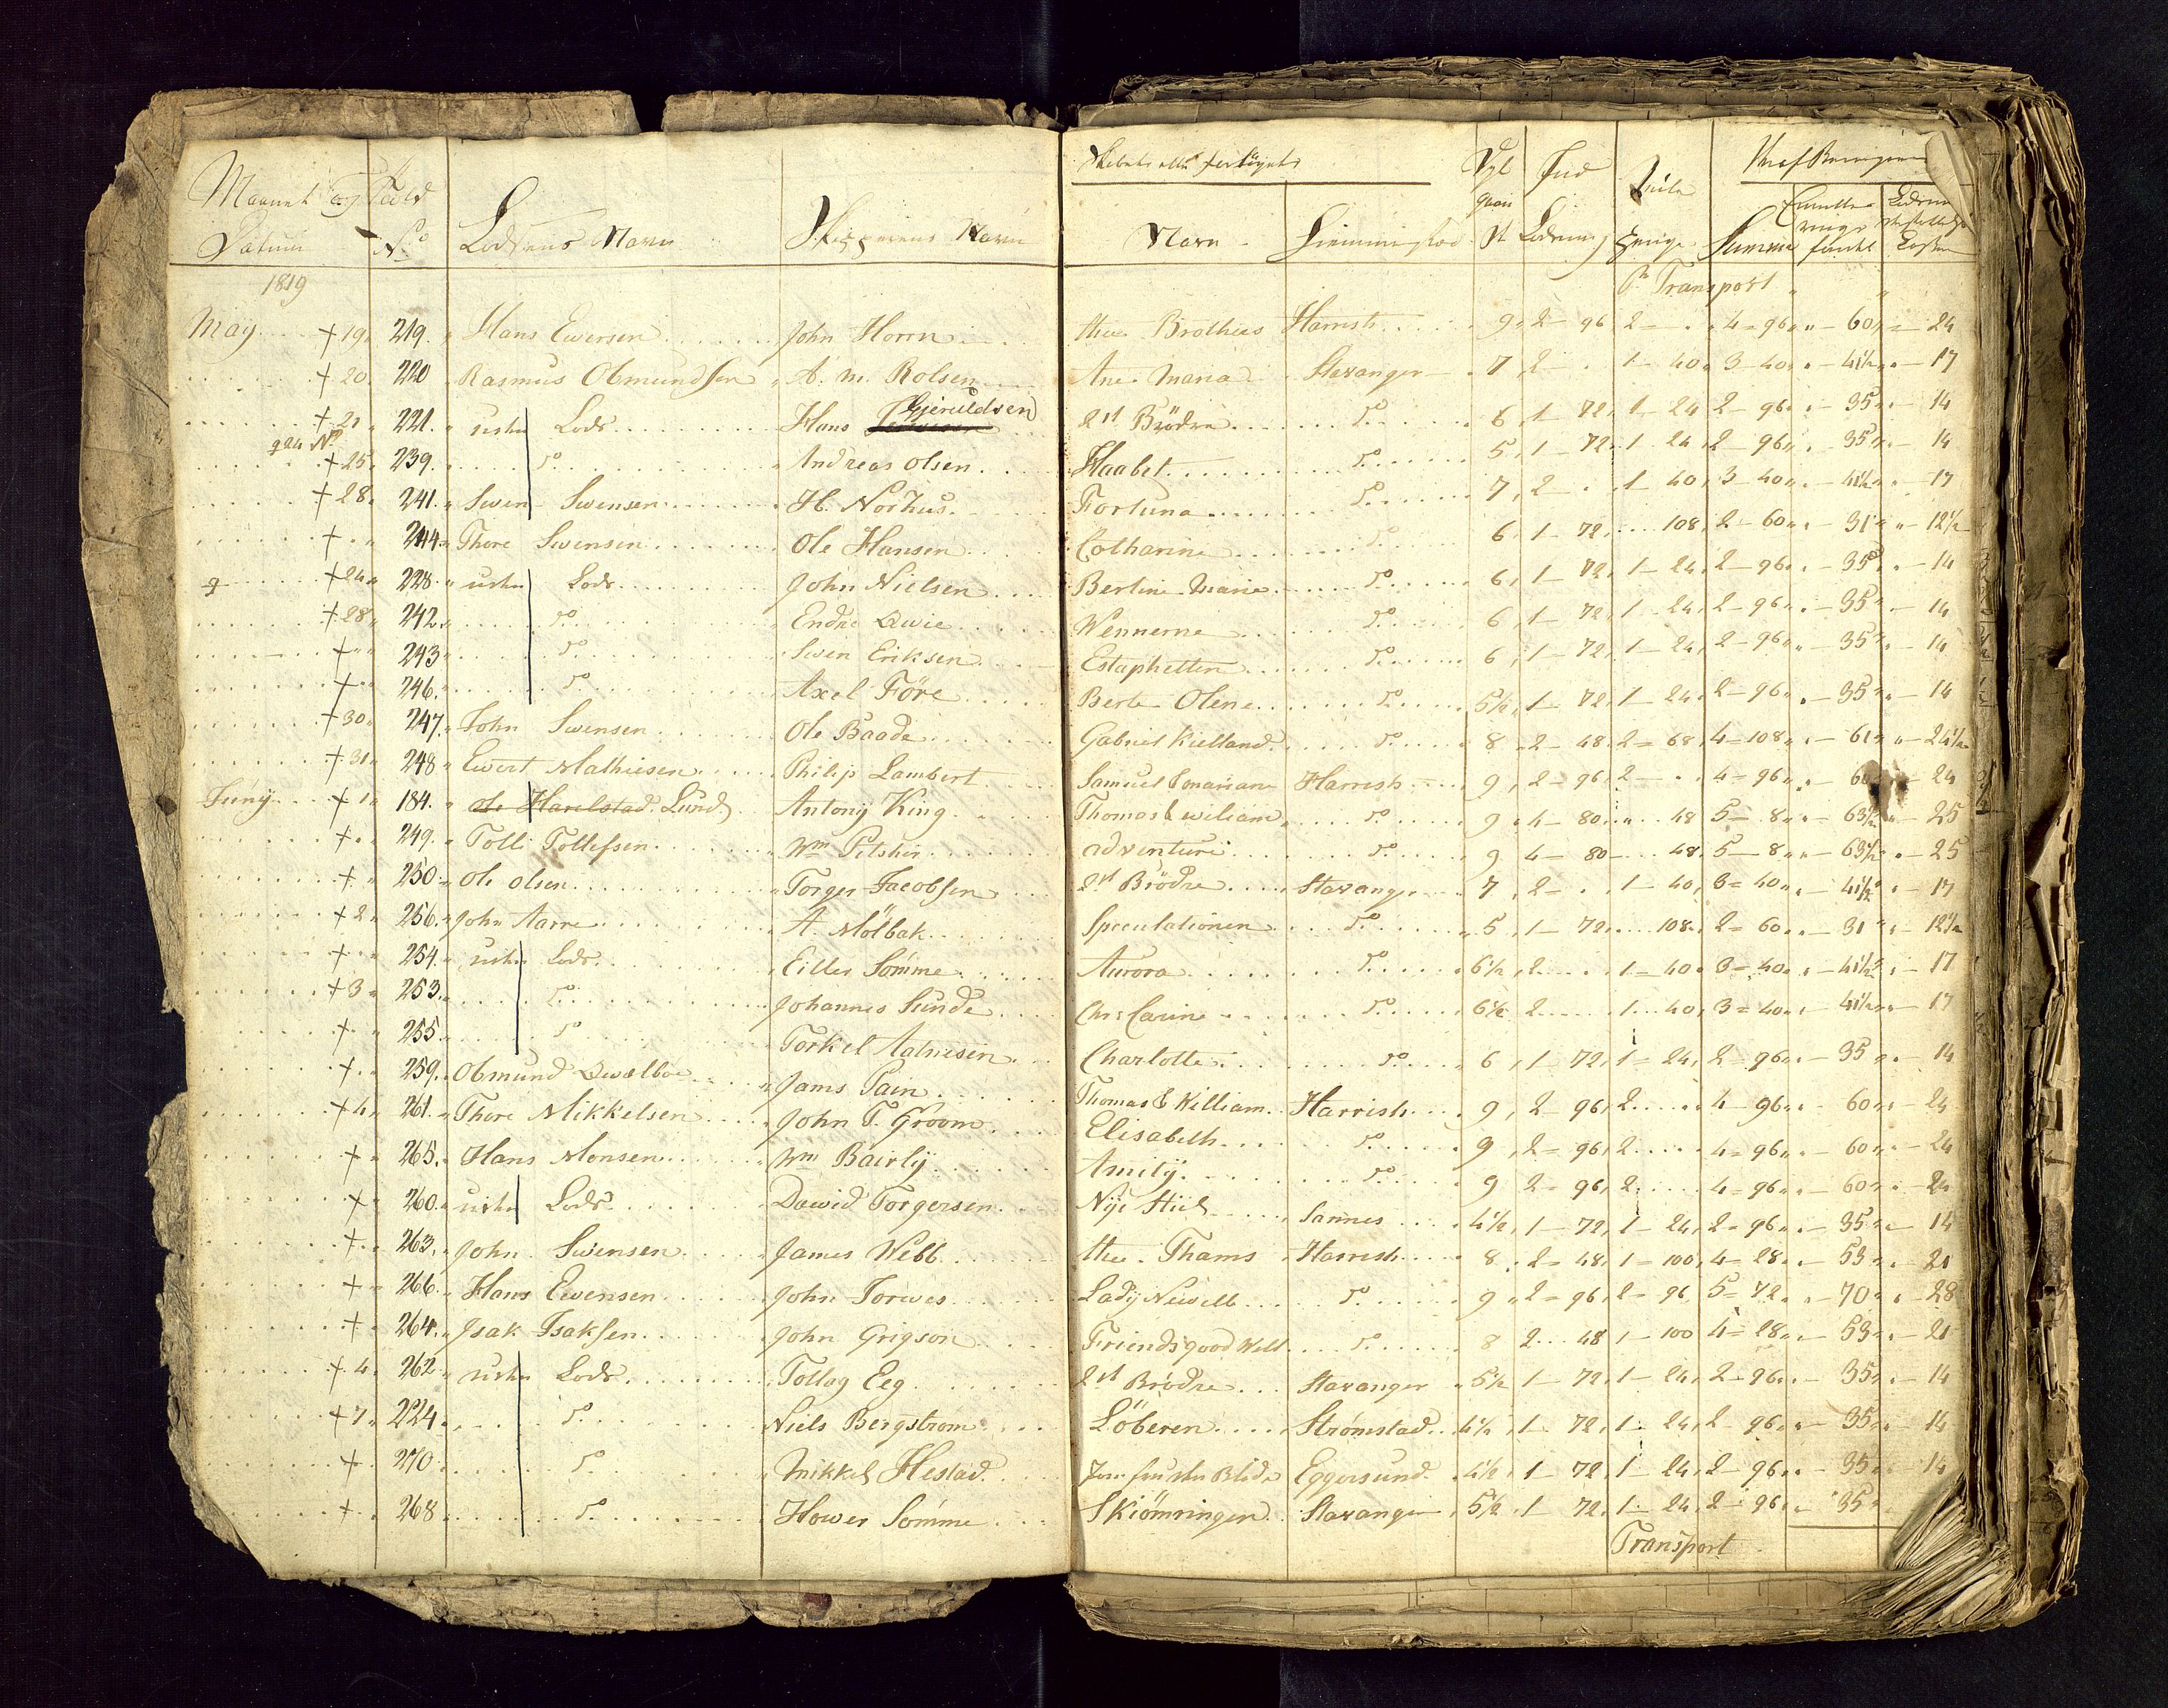 Maanet og Datum | Sedl No | Lodsens Navn | Skipperens Navn | Skibets eller Fartøyets Navn | Hiemmested | Dyb gaaende | Ind Lodsning | Qvile Penge | Summa
1819
Pr Transport „ „
May + 19 „ 219. „ Hans Ewersen John Horrn the Brothers Harrish 9 „ 2 - 96 2 - . 4 - 96 „ - 60 „ - 24
+ 20. 220 Rasmus Obmundsen A. M. Rolsen Ane Maria Stavanger 7 2 - . 1 - 40 3 - 40 „ - 41½ „ - 17
+ 21 „ 221. „ Lods Hans Gjeruldsen 2de Brödre do 6 1 - 72 1 - 24 2 - 96 „ - 35 „ - 14
+ 25. 239. do Andreas Olsen Haabet do 5 1 - 72 1 - 24 2 - 96 „ - 35 „ - 14
+ 28. 241. „ Swen Swensen H. Norhus. Fortuna do 7 2 - . 1 - 40 3 - 40 „ - 41½ „ - 17
+ „ 244. „ Thore Swensen Ole Hansen Catharine do 6 1 - 72 108 2 - 60 „ - 31 „ - 12½
+ 24 „ 228. „ Lods John Nielsen Bertine Marie do 6 1 - 72 1 - 24 2 - 96 „ - 35 „ - 14
+ 28 „ 242. do Endre Qwie Wennerne do 6 1 - 72 1 - 24 2 - 96 „ - 35 „ - 14
+ „ 243 do Swen Eriksen Estaphetten do 6 1 - 72 1 - 24 2 - 96 „ - 35 „ - 14
+ „ 246. do Axel Före Berte Olene do 5½ 1 - 72 1 - 24 2 - 96 „ - 35 „ - 14
+ 30 „ 247. „ John Swensen Ole Baade Gabriel Kielland do 8 2 - 48 2 - 68 4 - 108 „ - 61 „ - 24½
+ 31 „ 248 „ Ewert Mathiesen Philip Lambert Samuel & Mariane Harrish 9 2 - 96 2 - . 4 - 96 „ - 60 - 24
Juny + 1 „ 184. „ Harelstad Lund Antony King Thomas & Wiliam do 9 4 - 80 48 5 - 8 „ - 63½ „ - 25
+ „ 249. „ Tolli Tollefsen Wm Pitsher adventure do 9 4 - 80 48 5 - 8 „ - 63½ „ - 25
+ „ 250. Ole Olsen Torger Jacobsen 2de Brödre Stavanger 7 2 - . 1 - 40 3 - 40 „ - 41½ „ - 17
+ 2 „ 256. „ John Aarre A. Mölbak Speculationen do 5 1 - 72 108 2 - 60 „ - 31 „ - 12½
+ „ 254. „ Lods Eiller Sömme Aurora do 6½ 2 1 - 40 3 - 40 „ - 41½ „ - 17
+ 3 „ 253. do Johannes Sunde Chr: Carine do 6½ 2 1 - 40 3 - 40 „ - 41½ „ - 17
+ „ 255. do Torkel Aanesen Charlotte do 6 1 - 72 1 - 24 2 - 96 „ - 35 „ - 14
+ „ 259. Obmund Qwælboe Jams Pain Thomas & William Harrish 9 2 - 96 2 4 - 96 „ - 60 „ - 24
+ 4 „ 261. „ Thore Mikkelsen John T. Groom Elisabeth do 9 2 - 96 2 4 - 96 „ - 60 „ - 24
+ „ 265. „ Hans Monsen Wm Bairly Amity do 9 2 - 96 2 4 - 96 „ - 60 „ - 24
+ „ 260. „ Lods Dawid Torgersen Nye Hiel Sannes 4½ 1 - 72 1 - 24 2 - 96 „ - 35 „ - 14
+ „ 263. „ John Swensen James Webb the Thams Harrish 8 2 - 48 1 - 100 4 - 28 „ - 53 „ 21
+ „ 266. „ Hans Ewensen John Jorwes Lady Newill do 9 2 - 96 2 - 96 5 - 72 „ - 70 „ - 28
+ „ 264. „ Isak Isaksen John Grigson Friends good Will do 8 2 48 1 - 100 4 - 28 „ - 53 „ - 21
+ 4. 262. Lods Tollag Eeg 2de Brödre Stavanger 5½ 1 - 72 1 - 24 2 - 96 „ - 35 „ - 14
+ 7 „ 224. do Niels Bergström Löberen Strömstad 4½ 1 - 72 1 - 24 2 - 96 „ - 35 „ 14
+ „ 270 do Mikkel Hestad Eggersund 4½ 1 - 72 1 - 24 2 - 96 „ - 35 - 14
+ „ 268 do Hower Sömme Skiömringen Stavanger 5½ 1 72 1 - 24 2 - 96 „ - 35
Transport